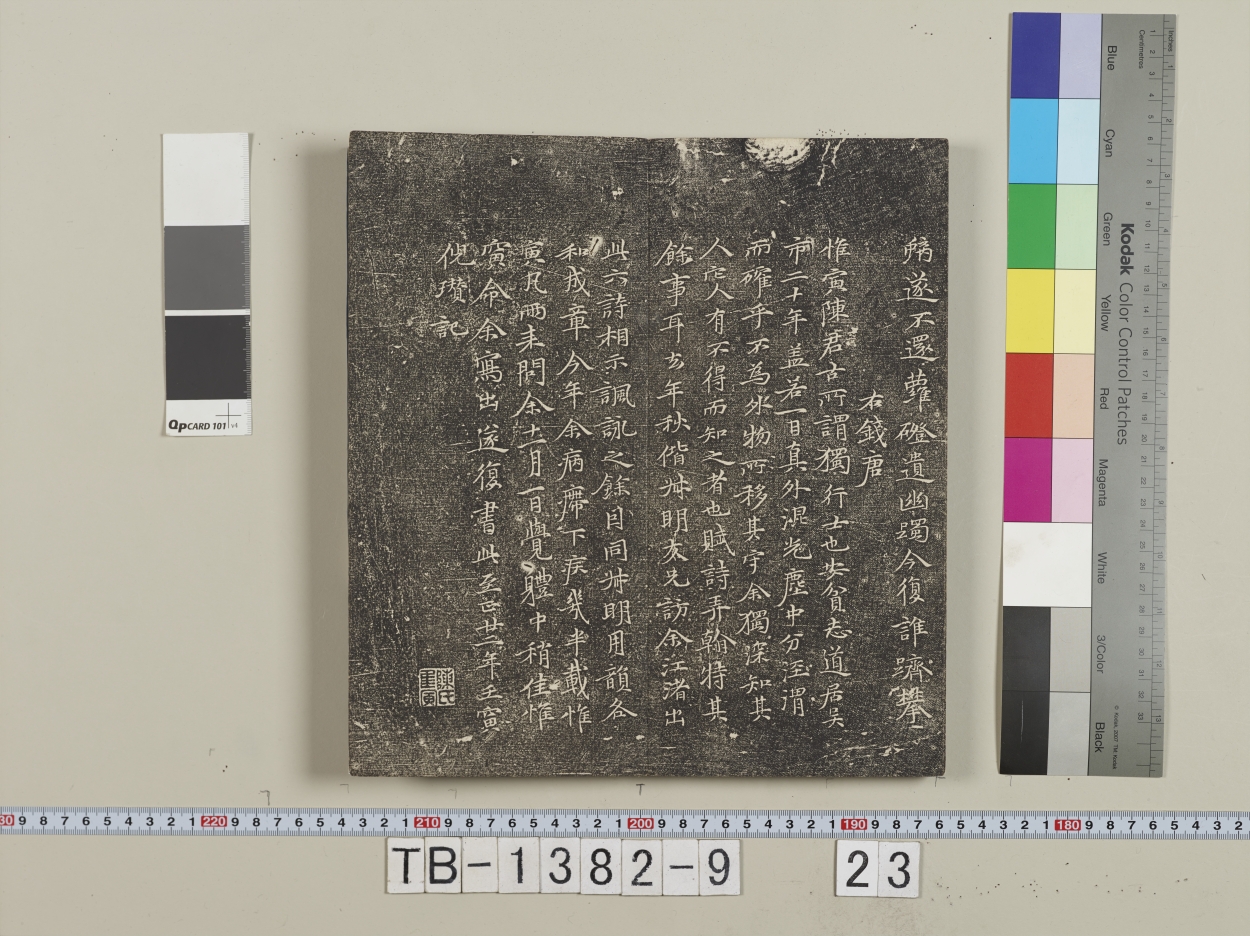 遂不還蘿磴遺幽躅今復誰躋攀
右錢唐
惟寅陳君古所謂獨行士也安貧志道居吴
市二十年盖若一日真外混光塵中分涇渭
而確乎不為外物所移其守余獨深知其
人它人有不得而知之者也賦詩弄翰特其
餘事耳去年秋偕叔明友兄訪余江渚出
此六詩相示諷詠之餘因同叔明用韻各
和成章今年余病滯下疾幾半載惟
寅凡兩来問余十一月一日覺體中稍佳惟
寅命余寫出遂復書此至正廿二年壬寅
倪瓚記
QPCARD 101 v4
Kodak Color Control Patches
Inches
Centimetres
Blue
Cyan
Green
Yellow
Red
Magenta
White
3/Color
Black
220
210
200
190
180
TB-1382-9
23